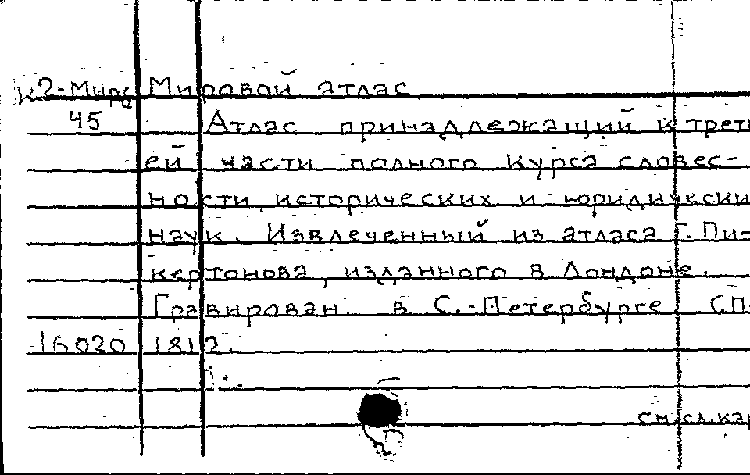 К2-Мира Мировой атлас
45 Атлас принадлежащий к треть
ей части полного курса словес-
ности, исторических и юридическии
наук. Извлеченный из атласа Г. Пи-
кертонова, изданного в Лондоне.
Гравирован в С.-Петербурге СП
16020 1812.
см.сл.кар